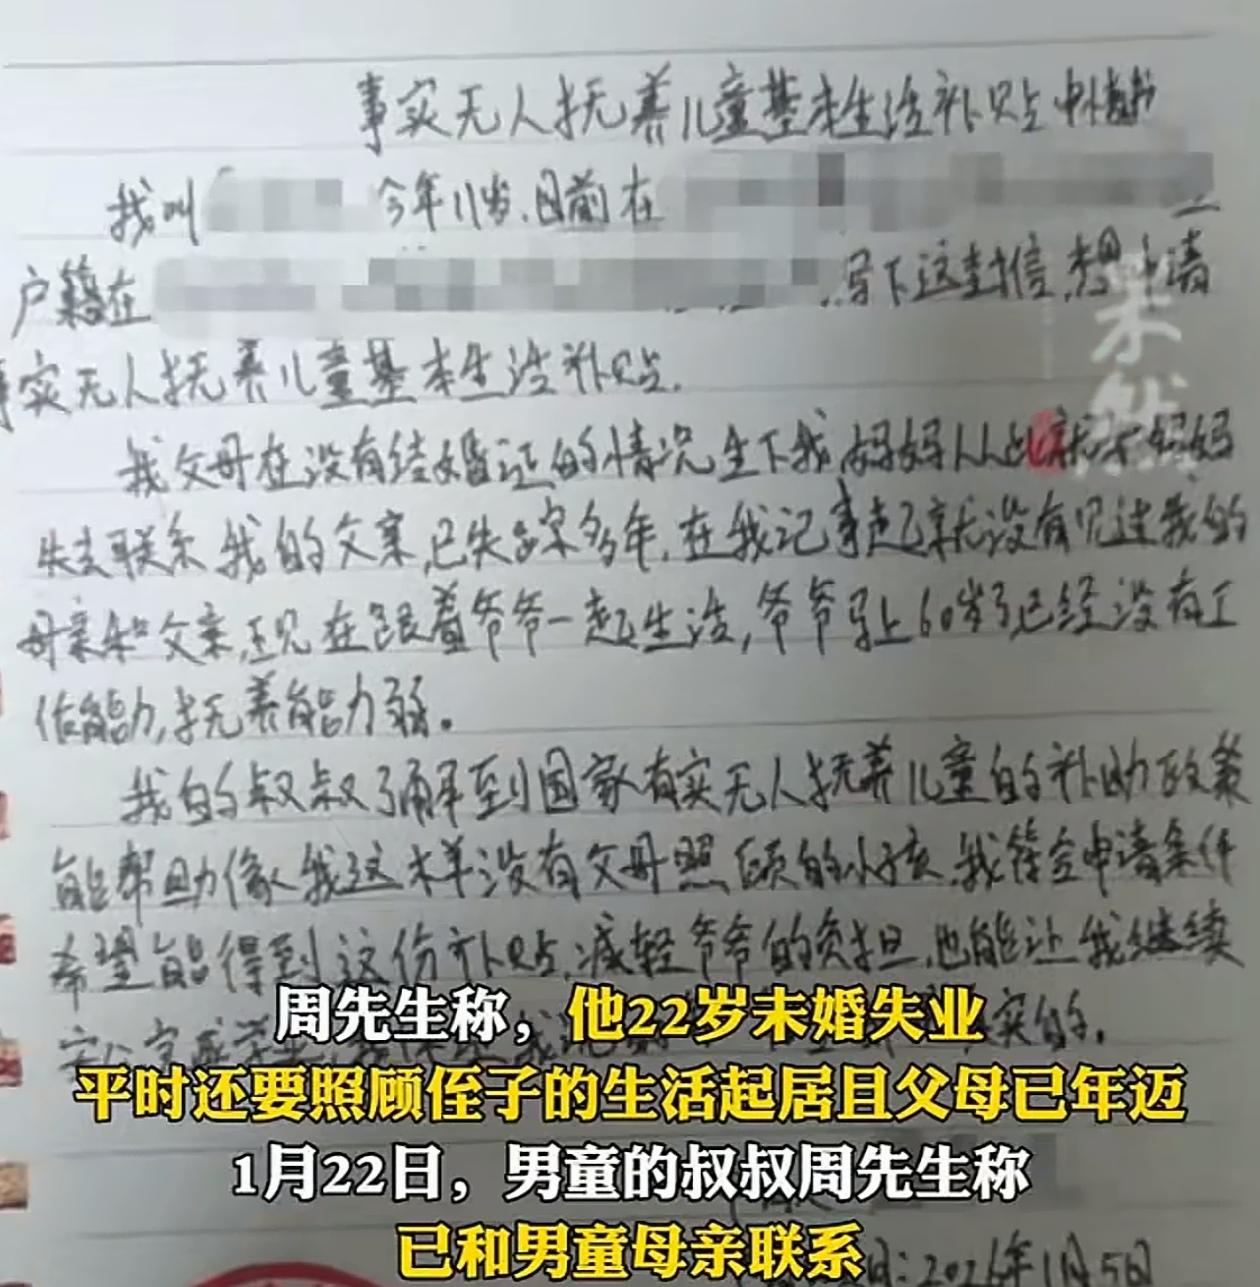 事实无人抚养儿童基本生活补贴申请书
我叫 今年11岁,目前在
户籍在 写下这封信,想申请
事实无人抚养儿童基本生活补贴.
我父母在没有结婚证的情况生下我,妈妈从此 妈妈
失去联系,我的父亲,已失踪多年,在我记事起就没有见过我的
母亲和父亲,现在跟着爷爷一起生活,爷爷马上60岁了,已经没有工
作能力,抚养能力弱。
我的叔叔了解到国家有实无人抚养儿童的补助政策
能帮助像我这样没有父母照顾的小孩,我符合申请条件
希望能得到这份补贴,减轻爷爷的负担,也能让我继续
实的.
周先生称，他22岁未婚失业
平时还要照顾侄子的生活起居且父母已年迈
1月22日，男童的叔叔周先生称
已和男童母亲联系
日:2026年1月5日